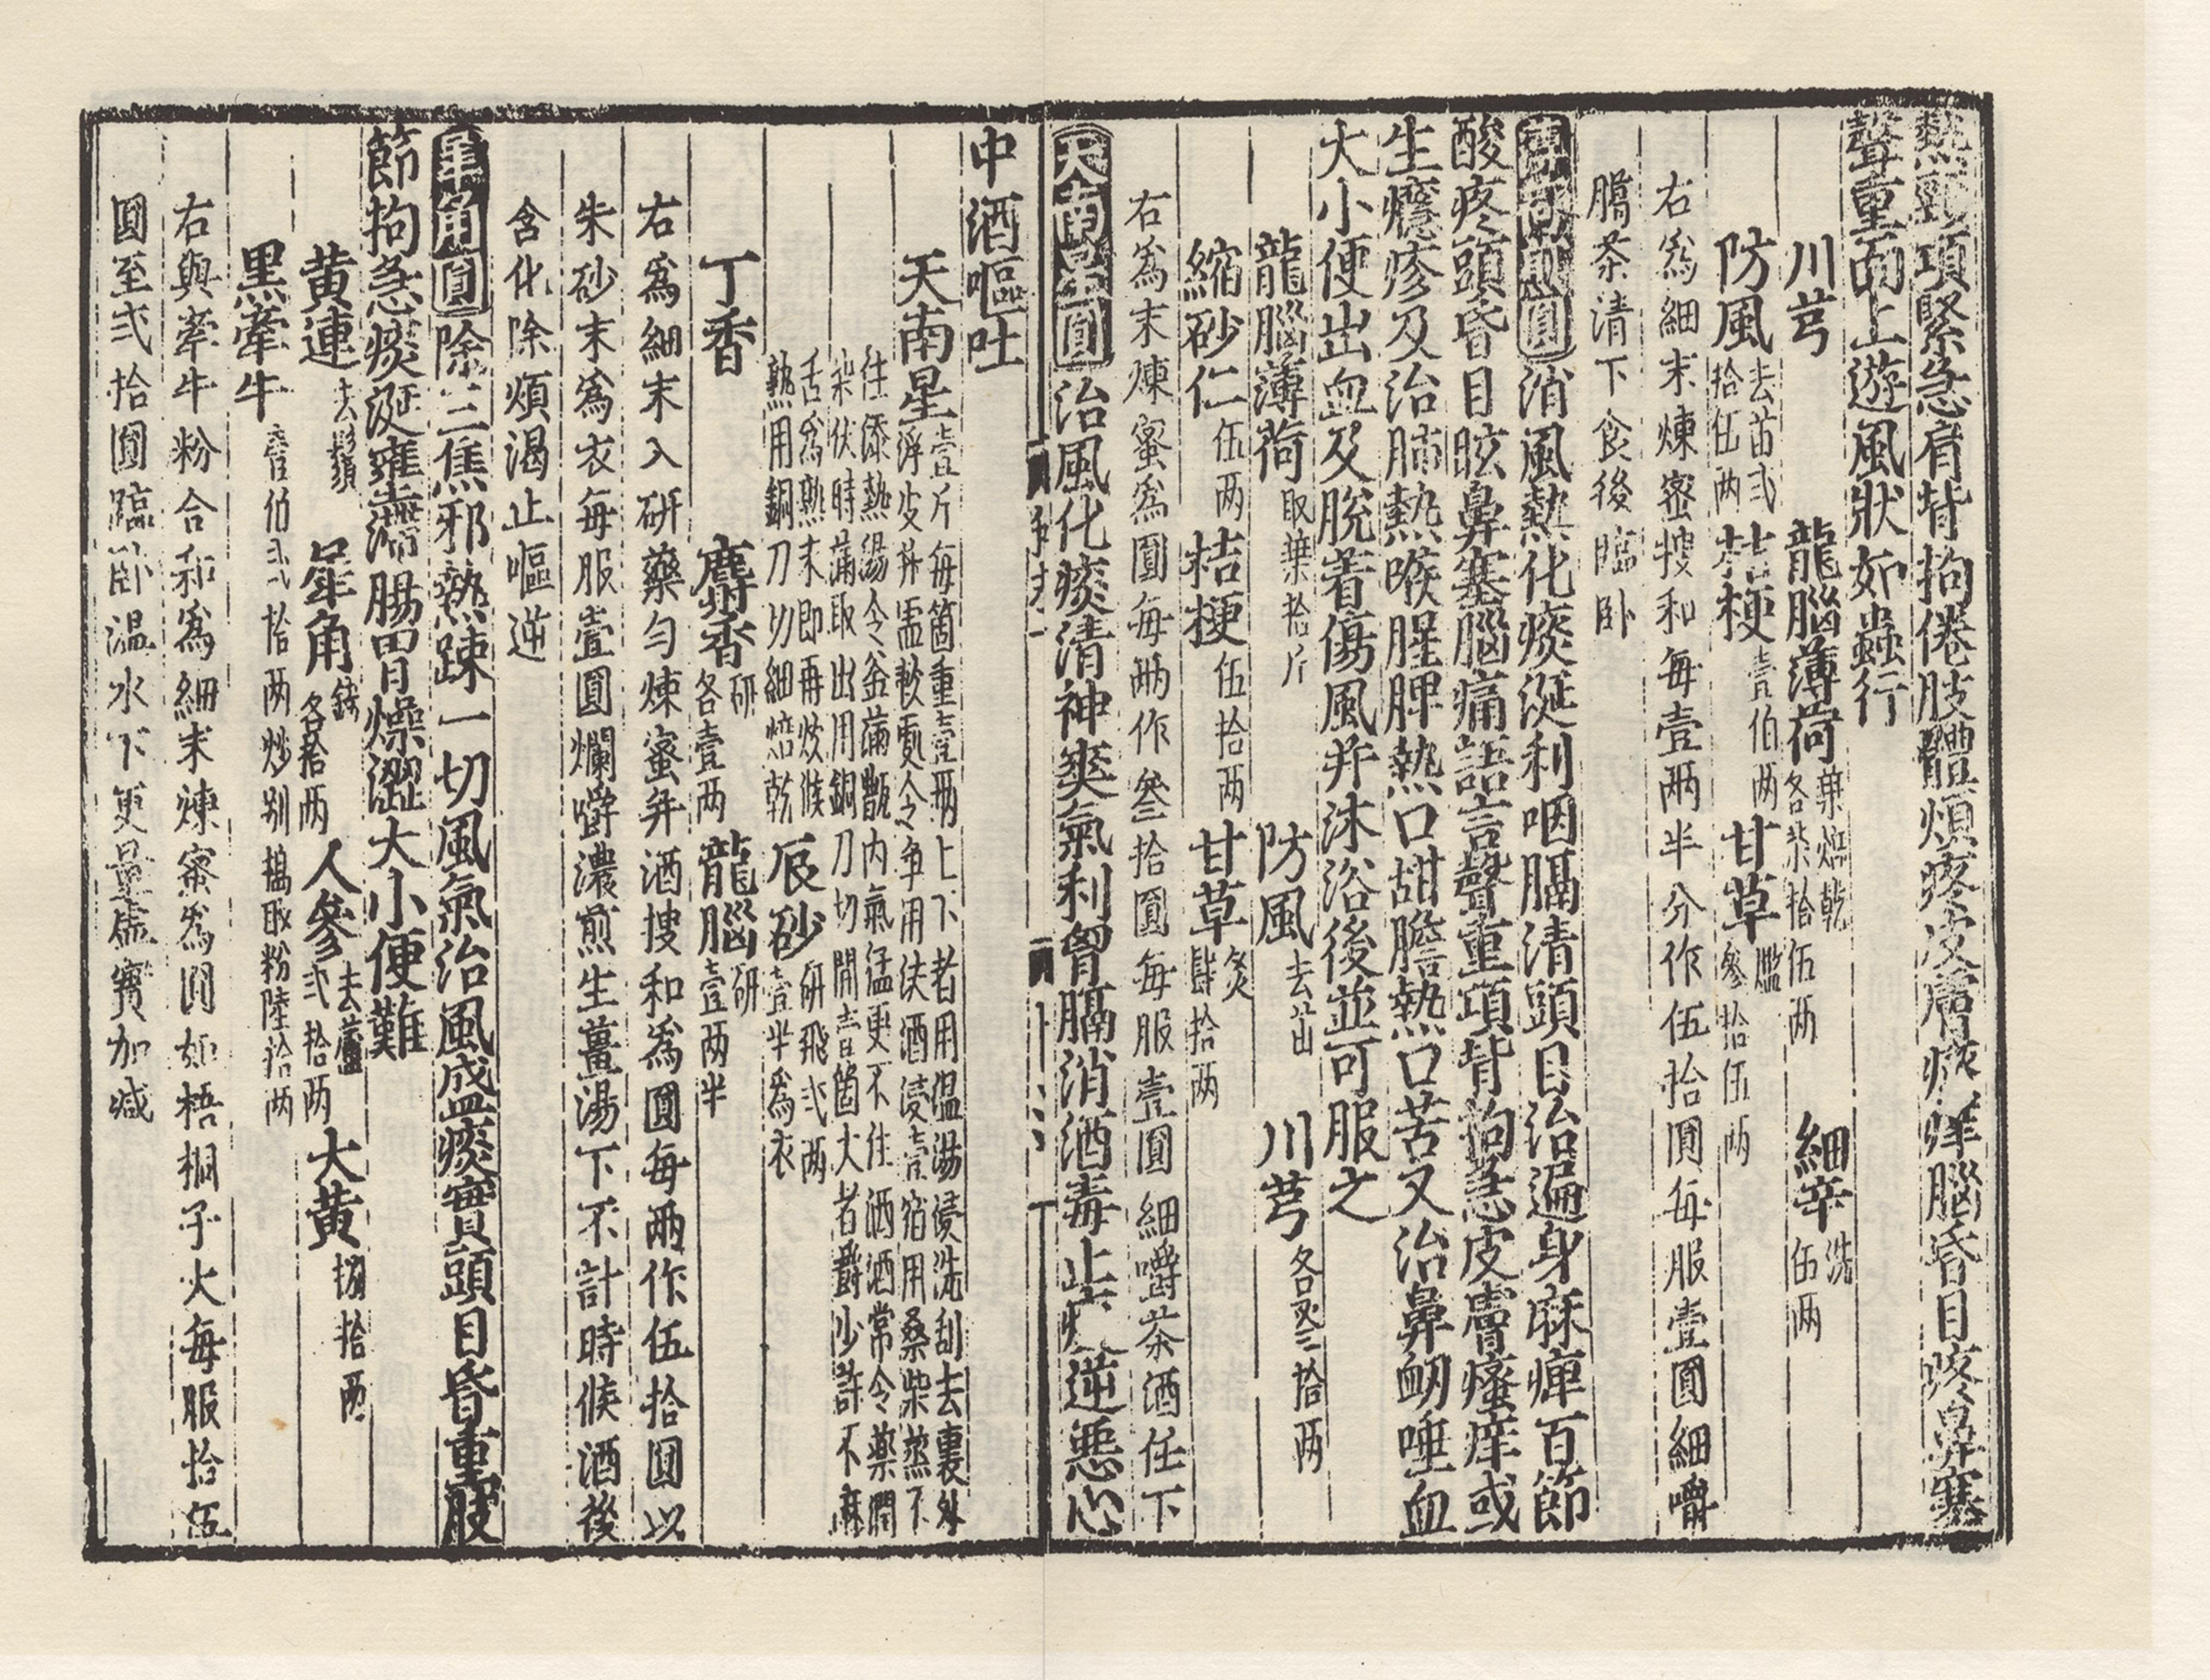 熱頸項緊急肩背拘倦肢體煩疼皮膚瘙痒腦昏目疼鼻塞
聲重面上遊風狀如蟲行
川芎 龍腦薄荷葉焙乾各柒拾伍两 細辛洗伍两
防風去苗弍拾伍两 桔梗壹伯两 甘草爁參拾伍两
右爲細末煉蜜搜和每壹兩半分作伍拾圓每服壹圓細嚼
臈茶清下食後臨卧
圓消風熱化痰涎利咽膈清頭目治遍身麻痺百節
酸疼頭昏目眩鼻塞腦痛語言聲重項背拘急皮膚瘙痒或
生癮疹及治肺熱喉腥脾熱口甜膽熱口苦又治鼻衂唾血
大小便出血及脫着傷風并沐浴後並可服之
龍腦薄荷取葉拾斤 防風去苗 川芎各叄拾两
縮砂仁伍两 桔梗伍拾两 甘草炙肆拾两
右爲末煉蜜爲圓每兩作叄拾圓每服壹圓細嚼茶酒任下
天南星圓治風化痰清神爽氣利胷膈消酒毒止痰逆惡心
中酒嘔吐
天南星壹斤每箇重壹兩上下者用温湯浸洗刮去裏外
浮皮并虛軟處令净用法酒浸壹宿用桑柴蒸不
住添熱湯令釜滿甑内氣猛更不住洒酒常令藥潤
柒伏時滿取出用銅刀切開壹箇大者嚼少許不麻
舌爲熟未即再炊候
熟用銅刀切細焙乾 辰砂研飛弍两壹半爲衣
丁香 麝香研各壹两 龍腦研壹两半
右爲細末入研藥匀煉蜜并酒搜和爲圓每兩作伍拾圓以
朱砂末爲衣每服壹圓爛嚼濃煎生薑湯下不計時候酒後
含化除煩渴止嘔逆
犀角圓除三焦邪熱踈一切風氣治風盛痰實頭目昏重肢
節拘急痰涎壅滯腸胃燥澀大小便難
黄連去鬚 犀角鎊各拾两 人參去蘆弍拾两 大黄捌拾两
黑牽牛壹伯弍拾两炒别搗取粉陸拾两
右與牽牛粉合和爲細末煉蜜爲圓如梧桐子大每服拾伍
圓至弍拾圓臨卧温水下更量虛實加减